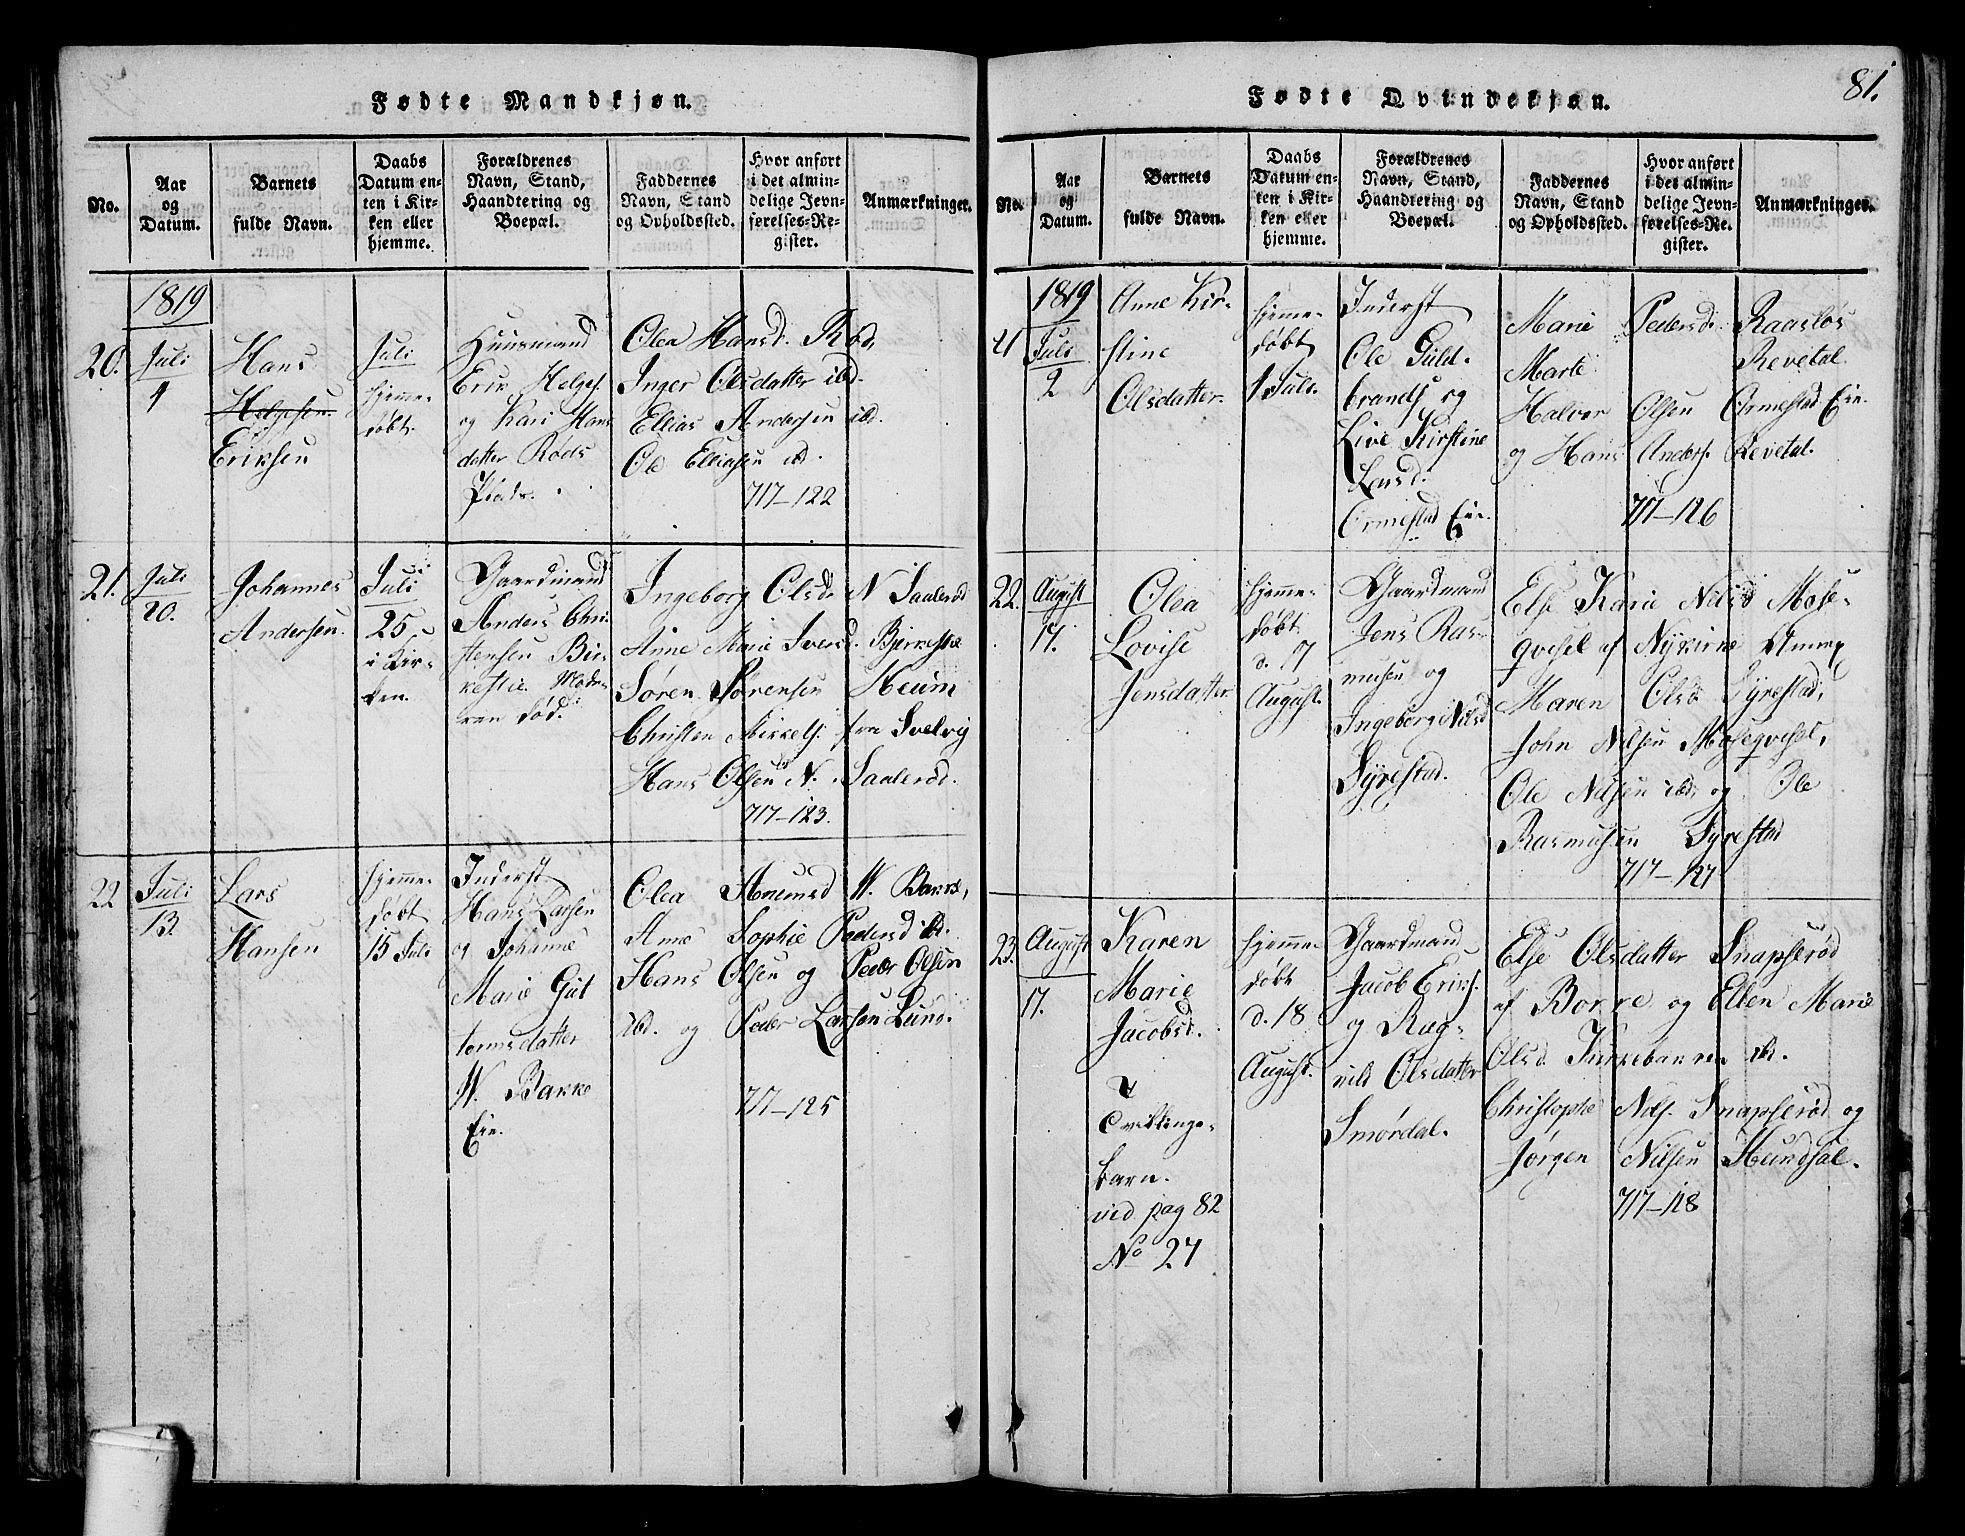 81.
Fødte Mandkjøn.
No.
Aar og Datum.
Barnets fulde Navn.
Daabs Datum enten i Kirken eller hjemme.
Forældrenes Navn, Stand, Haandtering og Boepæl.
Faddernes Navn, Stand og Opholdssted.
Hvor anført i det almindelige Jevnførelses-Register.
Anmærkninger.
1819
20. Juli 4
Hans
Helgesen
Eriksen
Juli
hjemme-
døbt.
Huusmand
Erik Helges.
og Kari Hans
datter Røds
Plads.
Olea Hansd. Rød,
Inger Olsdatter ibd.
Ellias Andersen ibd.
Ole Elliasen ibd.
717-122
21. Juli 20.
Johannes
Andersen.
Juli
25
i Kir-
ken.
Gaardmand
Anders Chri
stensen Bir-
kestie. Mode-
ren død.
Ingeborg Olsd. N. Saalerød
Anne Marie Iversd. Bjerkestie
Søren Sørensen Heum
Christen Mikkels. fra Svelvig
Hans Olsen N. Saalerød.
717-123.
22 Juli 13.
Lars
Hansen
hjemme-
døbt
15 Juli
Inderst
Hans Larsen
og Johanne
Marie Gut
tormsdatter
W. Bakke
Eie.
Olea Amundsd W. Bakke,
Anne Sophie Pedersd ibd.
Hans Olsen og Peder Olsen
ibd. og Peder Larsen Lund.
717-125
Fødte Qvindekjøn.
No.
Aar og Datum.
Barnets fulde Navn.
Daabs Datum enten i Kirken eller hjemme.
Forældrenes Navn, Stand, Haandtering og Boepæl.
Faddernes Navn, Stand og Opholdssted.
Hvor anført i det almindelige Jevnførelses-Register.
Anmærkninger.
1819
21 Juli 2
Anne Kir-
stine
Olsdatter
hjemme-
døbt
4 Juli.
Inderst
Ole Guld-
brands. og
Live Kirstine
Larsd.
Ormestad Eie.
Marie Pedersd. Raasløs
Marte Revetal
Halvor Olsen Ormestad Eie.
og Hans Anders. Revetal.
717-126
22. August 17.
Olea
Lovise
Jensdatter
hjemme-
døbt
d. 19
August.
Gaardmand
Jens Ras-
musen og
Ingeborg Nilsd
Syrestad.
Else Karie Nilsd Mose-
qvesel af Nykirke Annex
Maren Olsd Syrestad,
John Nilsen Moseqvesel,
Ole Nilsen ibd. og Ole
Rasmusen Syrestad
717-127
23. August 17.
Karen
Marie
Jacobsd.
Tvillinge-
barn.
vid. pag 82
No 27
hjemme-
døbt
d. 18
August.
Gaardmand
Jacob Eriks.
og Rag-
nild Olsdatter
Smørdal.
Else Olsdatter Snapserød
af Borre og Ellen Marie
Olsd Kirkebakken ibd.
Christophe Nils. Snapserød og
Jørgen Nilsen Hundsal.
717-128